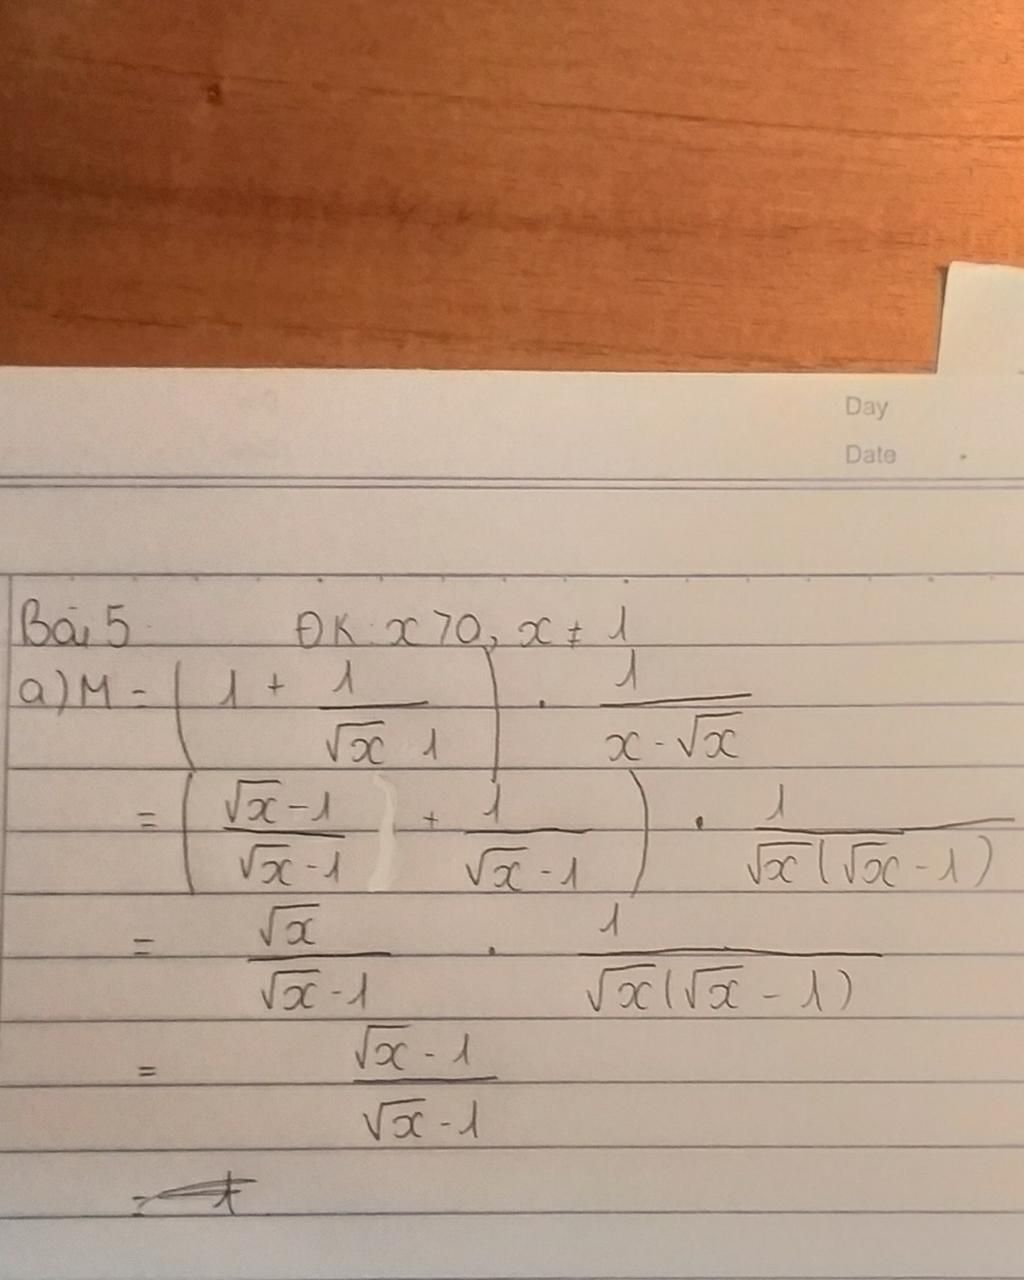 Day
Date
Bài 5 ĐK: x > 0, x ≠ 1
a) M = (1 + 1/(√x 1)) . 1/(x - √x)
= ((√x - 1)/(√x - 1) + 1/(√x - 1)) . 1/(√x(√x - 1))
= √x/(√x - 1) . 1/(√x(√x - 1))
= (√x - 1)/(√x - 1)